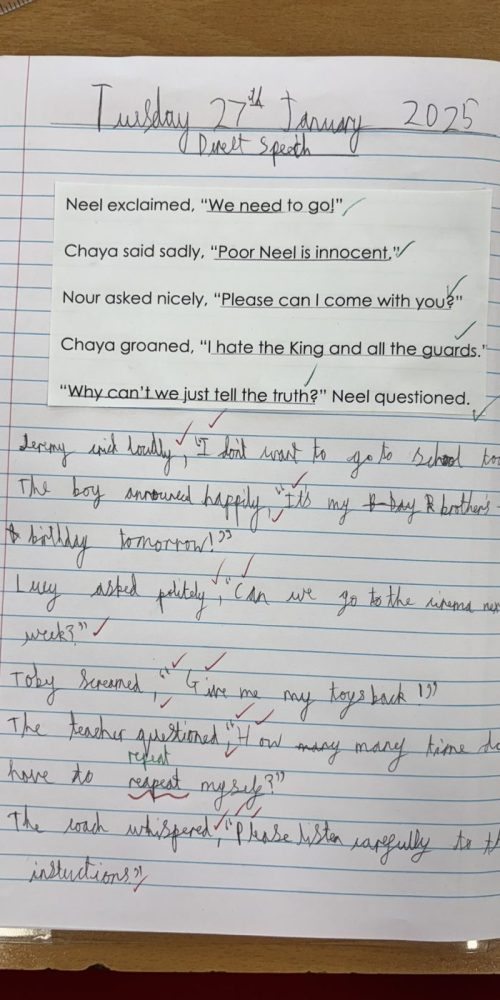 Tuesday 27th January 2025
Direct Speech
Neel exclaimed, “We need to go!”
Chaya said sadly, “Poor Neel is innocent.”
Nour asked nicely, “Please can I come with you?”
Chaya groaned, “I hate the King and all the guards.”
“Why can’t we just tell the truth?” Neel questioned.
Jeremy loudly, “I don't want to go to school
The boy announced happily, “It's my brother's
birthday tomorrow!”
Lucy asked politely, “Can we go to the cinema
week?”
Toby screamed, “Give me my toys back!”
The teacher questioned, “How many time
repeat
have to reapeat myself?”
The coach whispered, “Please listen carefully to
instuctions”